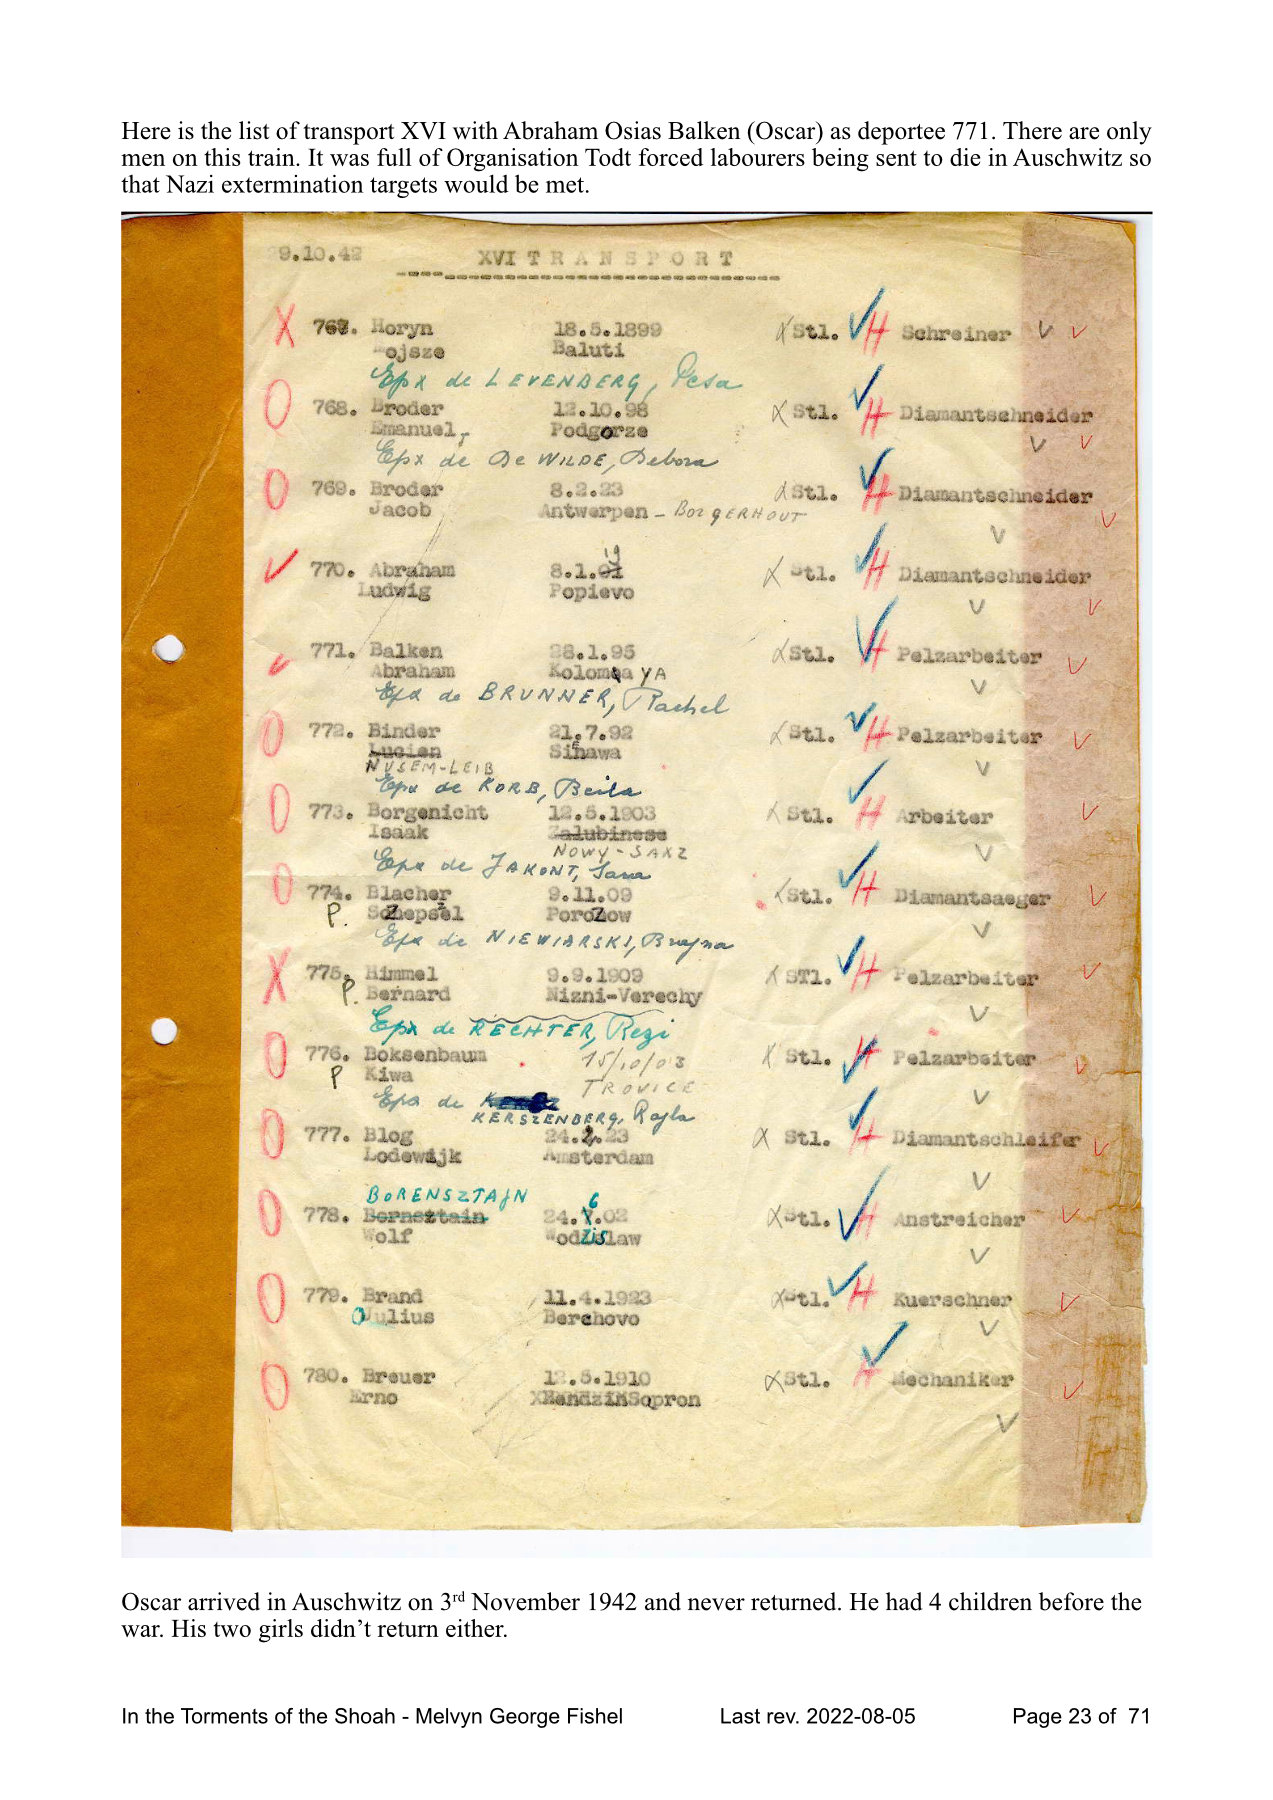 Here is the list of transport XVI with Abraham Osias Balken (Oscar) as deportee 771. There are only
men on this train. It was full of Organisation Todt forced labourers being sent to die in Auschwitz so
that Nazi extermination targets would be met.
9.10.42 XVI TRANSPORT
767. Horyn 18.5.1899 Stl. H Schreiner
ojsze Baluti
Epx de LEVENBERG, Pesa
768. Broder 12.10.98 Stl. H Diamantschneider
Emanuel, Podgorze
Epx de De WILDE, Debora
769. Broder 8.2.23 Stl. H Diamantschneider
Jacob Antwerpen - BORGERHOUT
19
770. Abraham 8.1.01 Stl. H Diamantschneider
Ludwig Popievo
771. Balken 28.1.95 Stl. H Pelzarbeiter
Abraham Kolomea YA
Epx de BRUNNER, Rachel
772. Binder 21.7.92 Stl. H Pelzarbeiter
Lucien Sinawa
NUSEM-LEIB
Epx de KORB, Beila
773. Borgenicht 12.5.1903 Stl. H Arbeiter
Isaak Zalubinese
NOWY-SAXZ
Epx de JAKONT, Sara
774. Blacher 9.11.09 Stl. H Diamantsaeger
P. Schepsel Porozow
Epx de NIEWIARSKI, Brajna
775. Himmel 9.9.1909 STl. H Pelzarbeiter
P. Bernard Nizni-Verechy
Epx de RECHTER, Regi
776. Boksenbaum 15/10/03 Stl. H Pelzarbeiter
P Kiwa TROVICE
Epx de
KERSZENBERG, Rajla
777. Blog 24.2.23 Stl. H Diamantschleifer
Lodewijk Amsterdam
BORENSZTAJN 6
778. Bornsztain 24.7.02 Stl. H Anstreicher
Wolf Wodzislaw
779. Brand 11.4.1923 Stl. H Kuerschner
Julius Berehovo
780. Breuer 12.5.1910 Stl. H Mechaniker
Erno Sopron
Oscar arrived in Auschwitz on 3rd November 1942 and never returned. He had 4 children before the
war. His two girls didn’t return either.
In the Torments of the Shoah - Melvyn George Fishel Last rev. 2022-08-05 Page 23 of 71